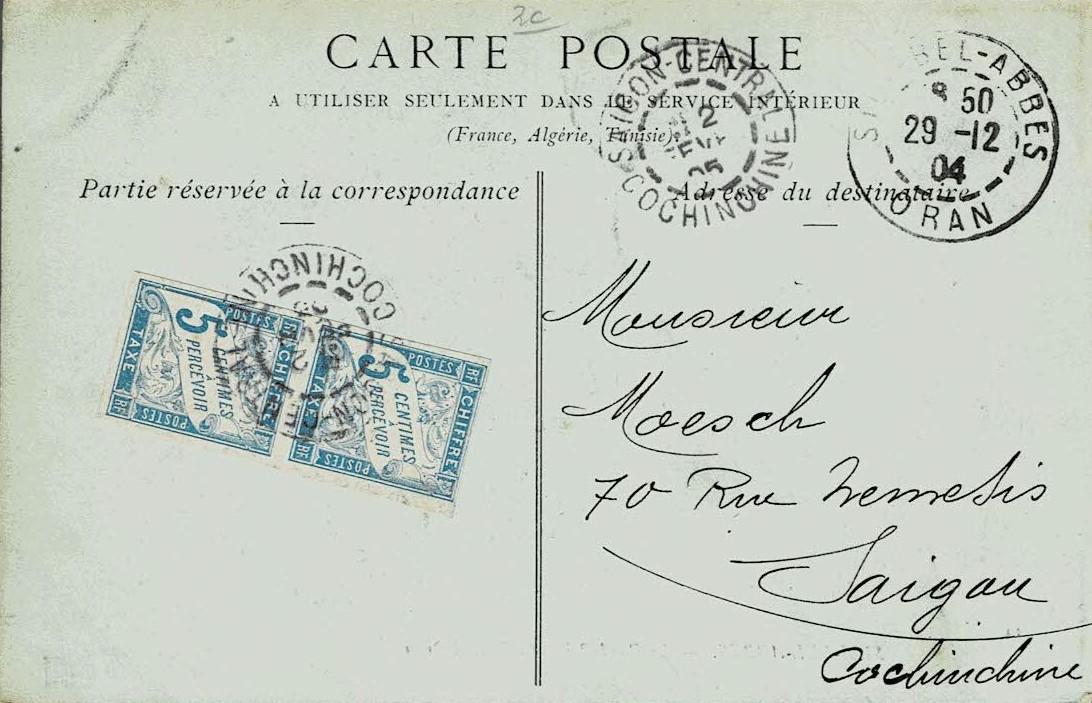 2c
CARTE POSTALE
A UTILISER SEULEMENT DANS LE SERVICE INTÉRIEUR
(France, Algérie, Tunisie).
Partie réservée à la correspondance
Adresse du destinataire
SAIGON-CENTRAL
2
COCHINCHINE
BEL-ABBES
8 50
29 -12
04
ORAN
COCHINCHINE
POSTES RF
CHIFFRE
TAXE
5
CENTIMES
A PERCEVOIR
RF POSTES
POSTES RF
CHIFFRE
TAXE
5
CENTIMES
A PERCEVOIR
POSTES RF
Monsieur
Moesch
70 Rue
Saigon
Cochinchine